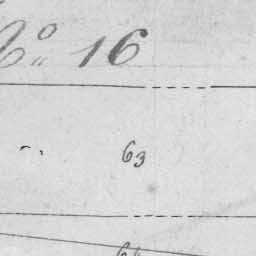 No 16
63